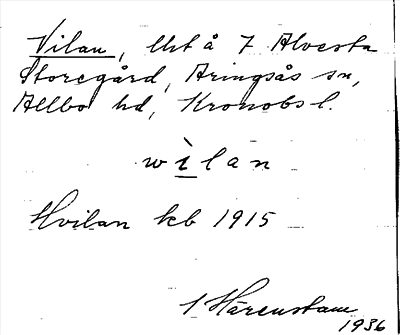 Vilan, lht å 7 Alvesta
Storegård, Aringsås sn,
Allbo hd, Kronobs l.
wìlan
Hvilan kb 1915
1 Härenstam
1936